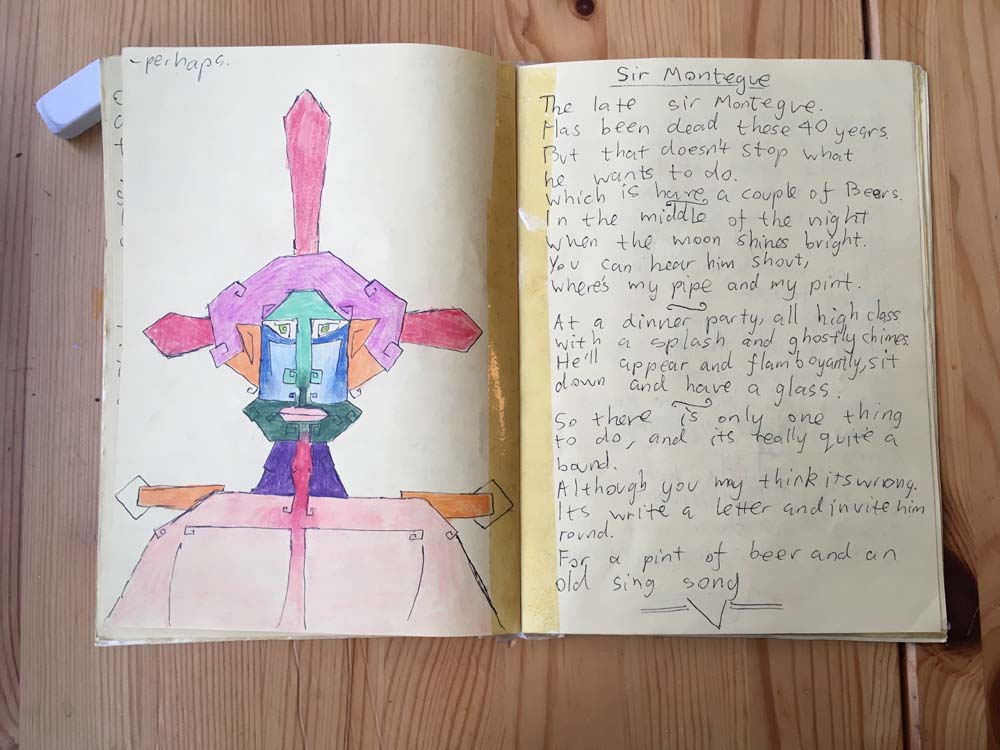 ~perhaps.
Sir Montegue
The late sir Montegue.
Has been dead these 40 years.
But that doesn't stop what
he wants to do.
which is have a couple of Beers.
In the middle of the night
when the moon shines bright.
You can hear him shout,
where's my pipe and my pint.
At a dinner party, all high class
with a splash and ghostly chimes
He'll appear and flamboyantly, sit
down and have a glass.
So there is only one thing
to do, and its really quite a
bound.
Although you may think its wrong.
Its write a letter and invite him
round.
For a pint of beer and an
old sing song